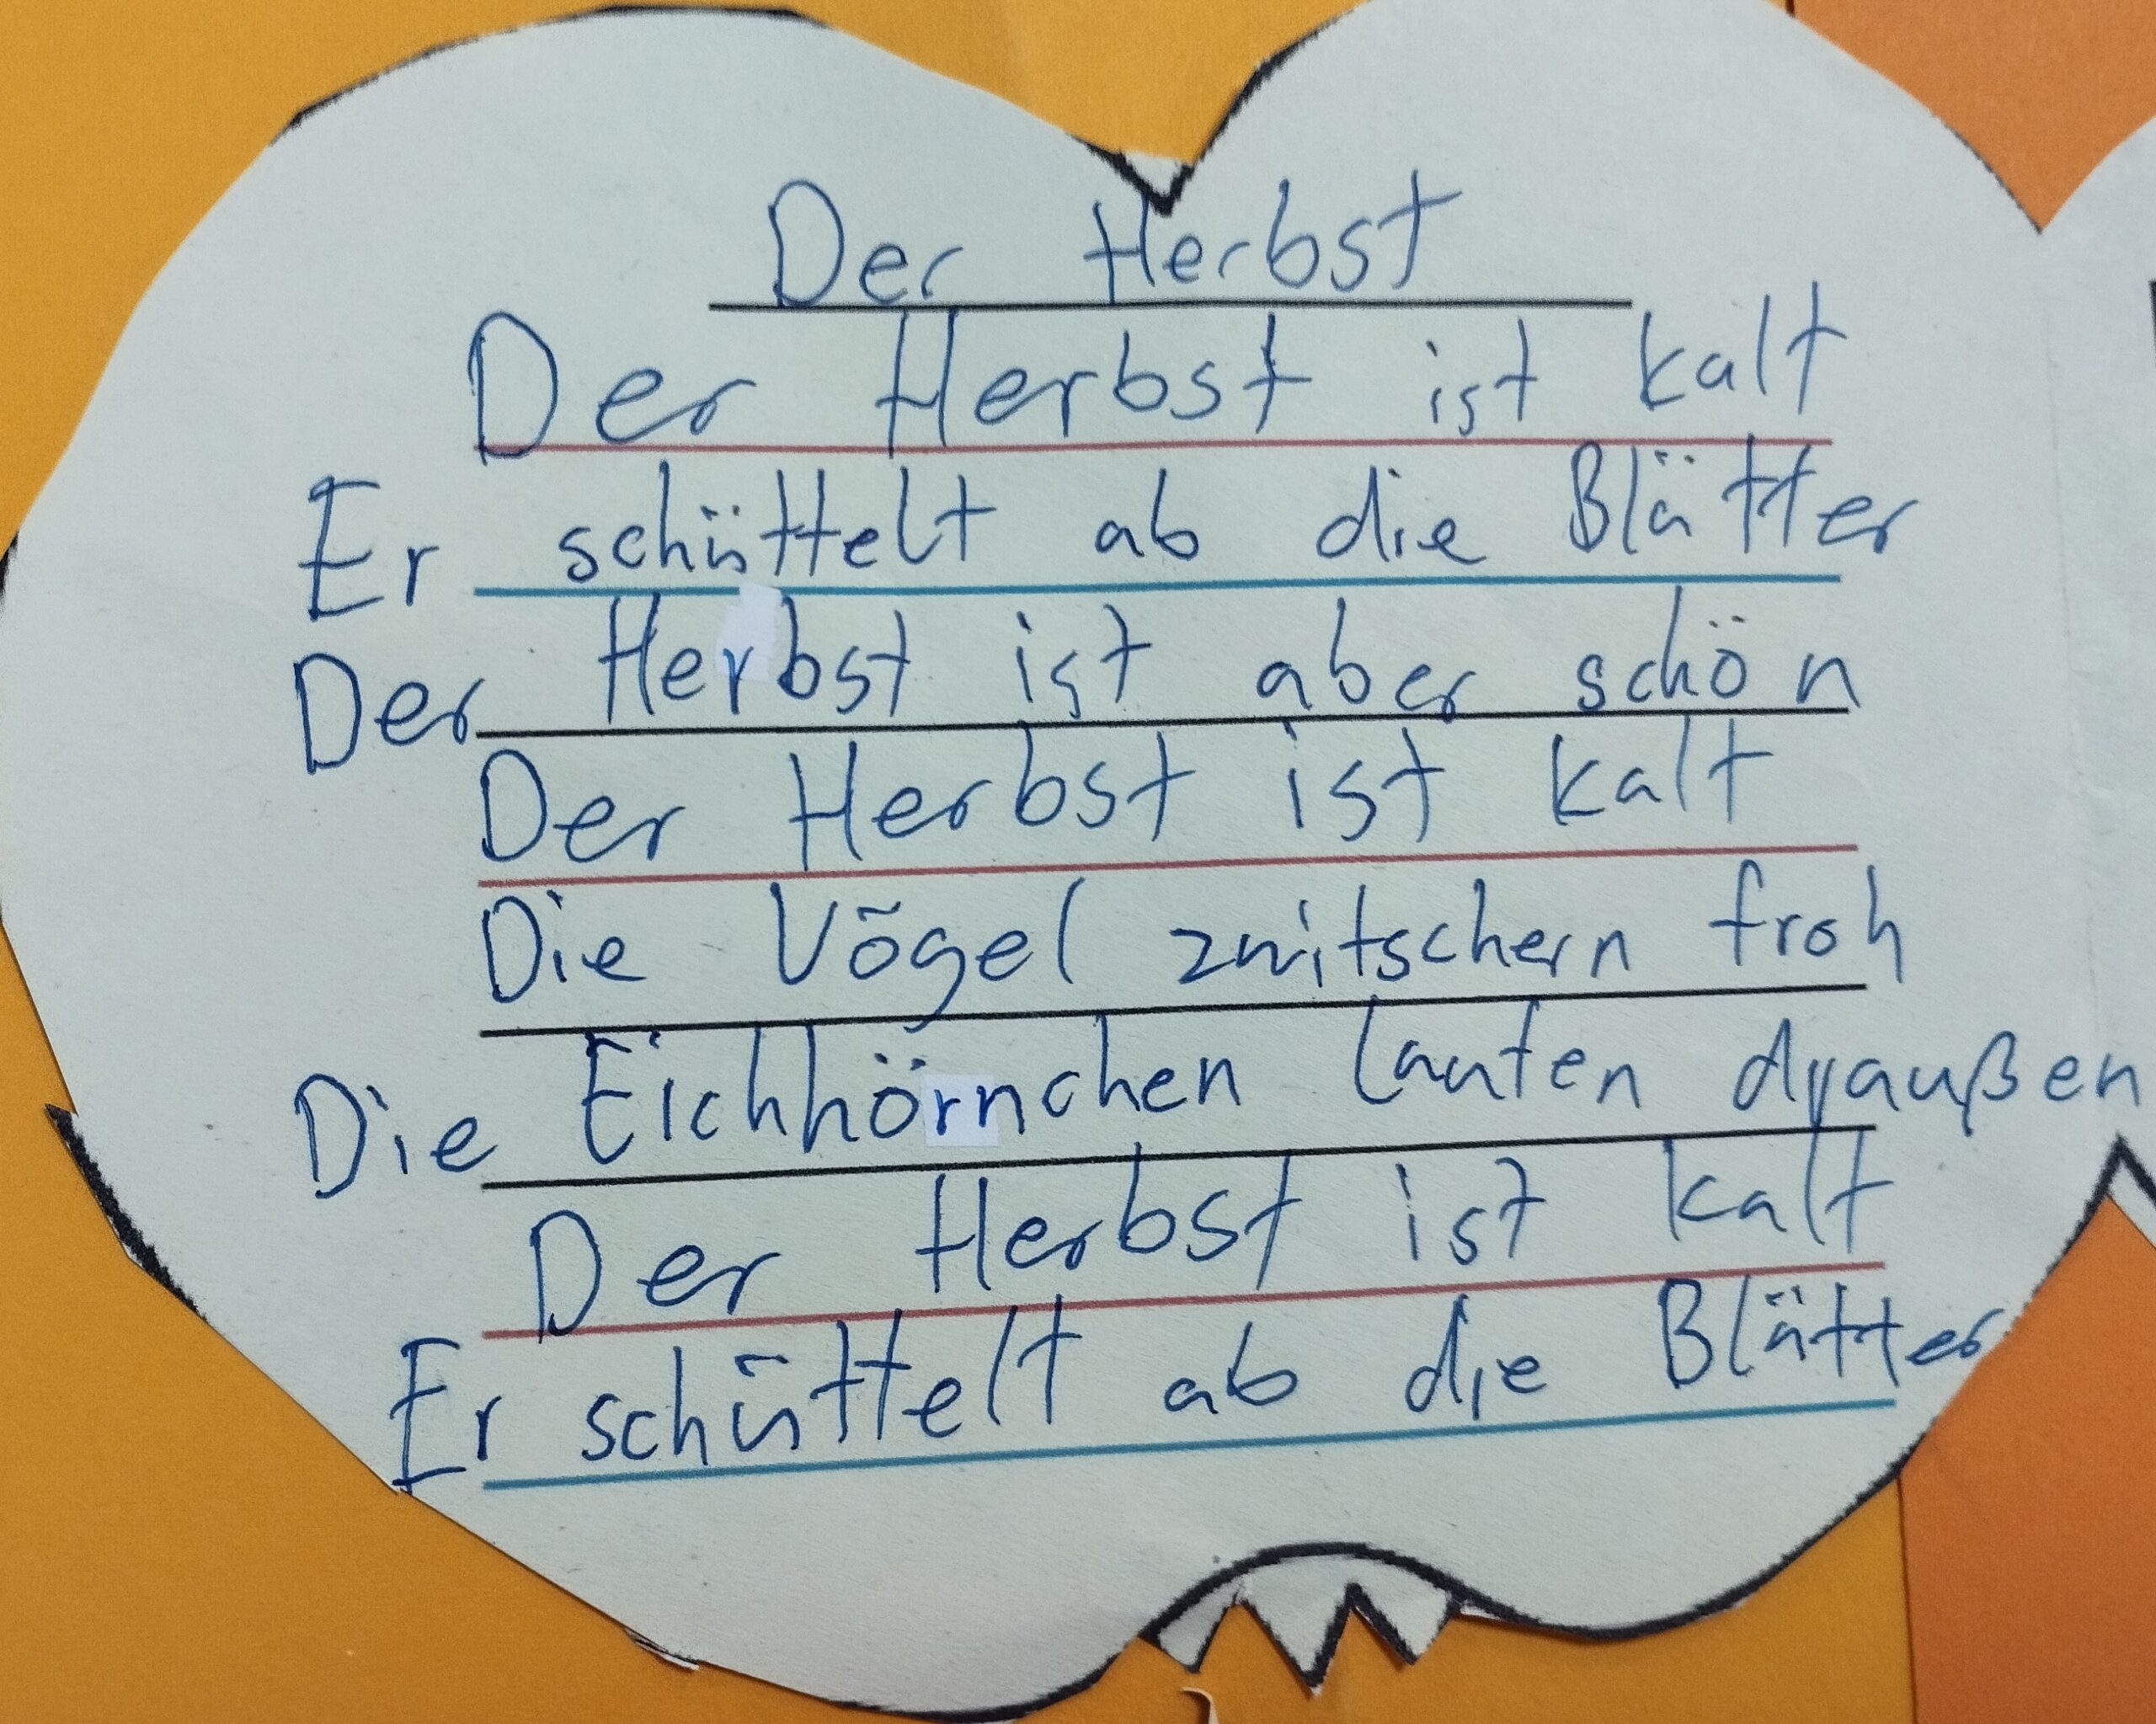 Der Herbst
Der Herbst ist kalt
Er schüttelt ab die Blätter
Der Herbst ist aber schön
Der Herbst ist kalt
Die Vögel zwitschern froh
Die Eichhörnchen laufen draußen
Der Herbst ist kalt
Er schüttelt ab die Blätter